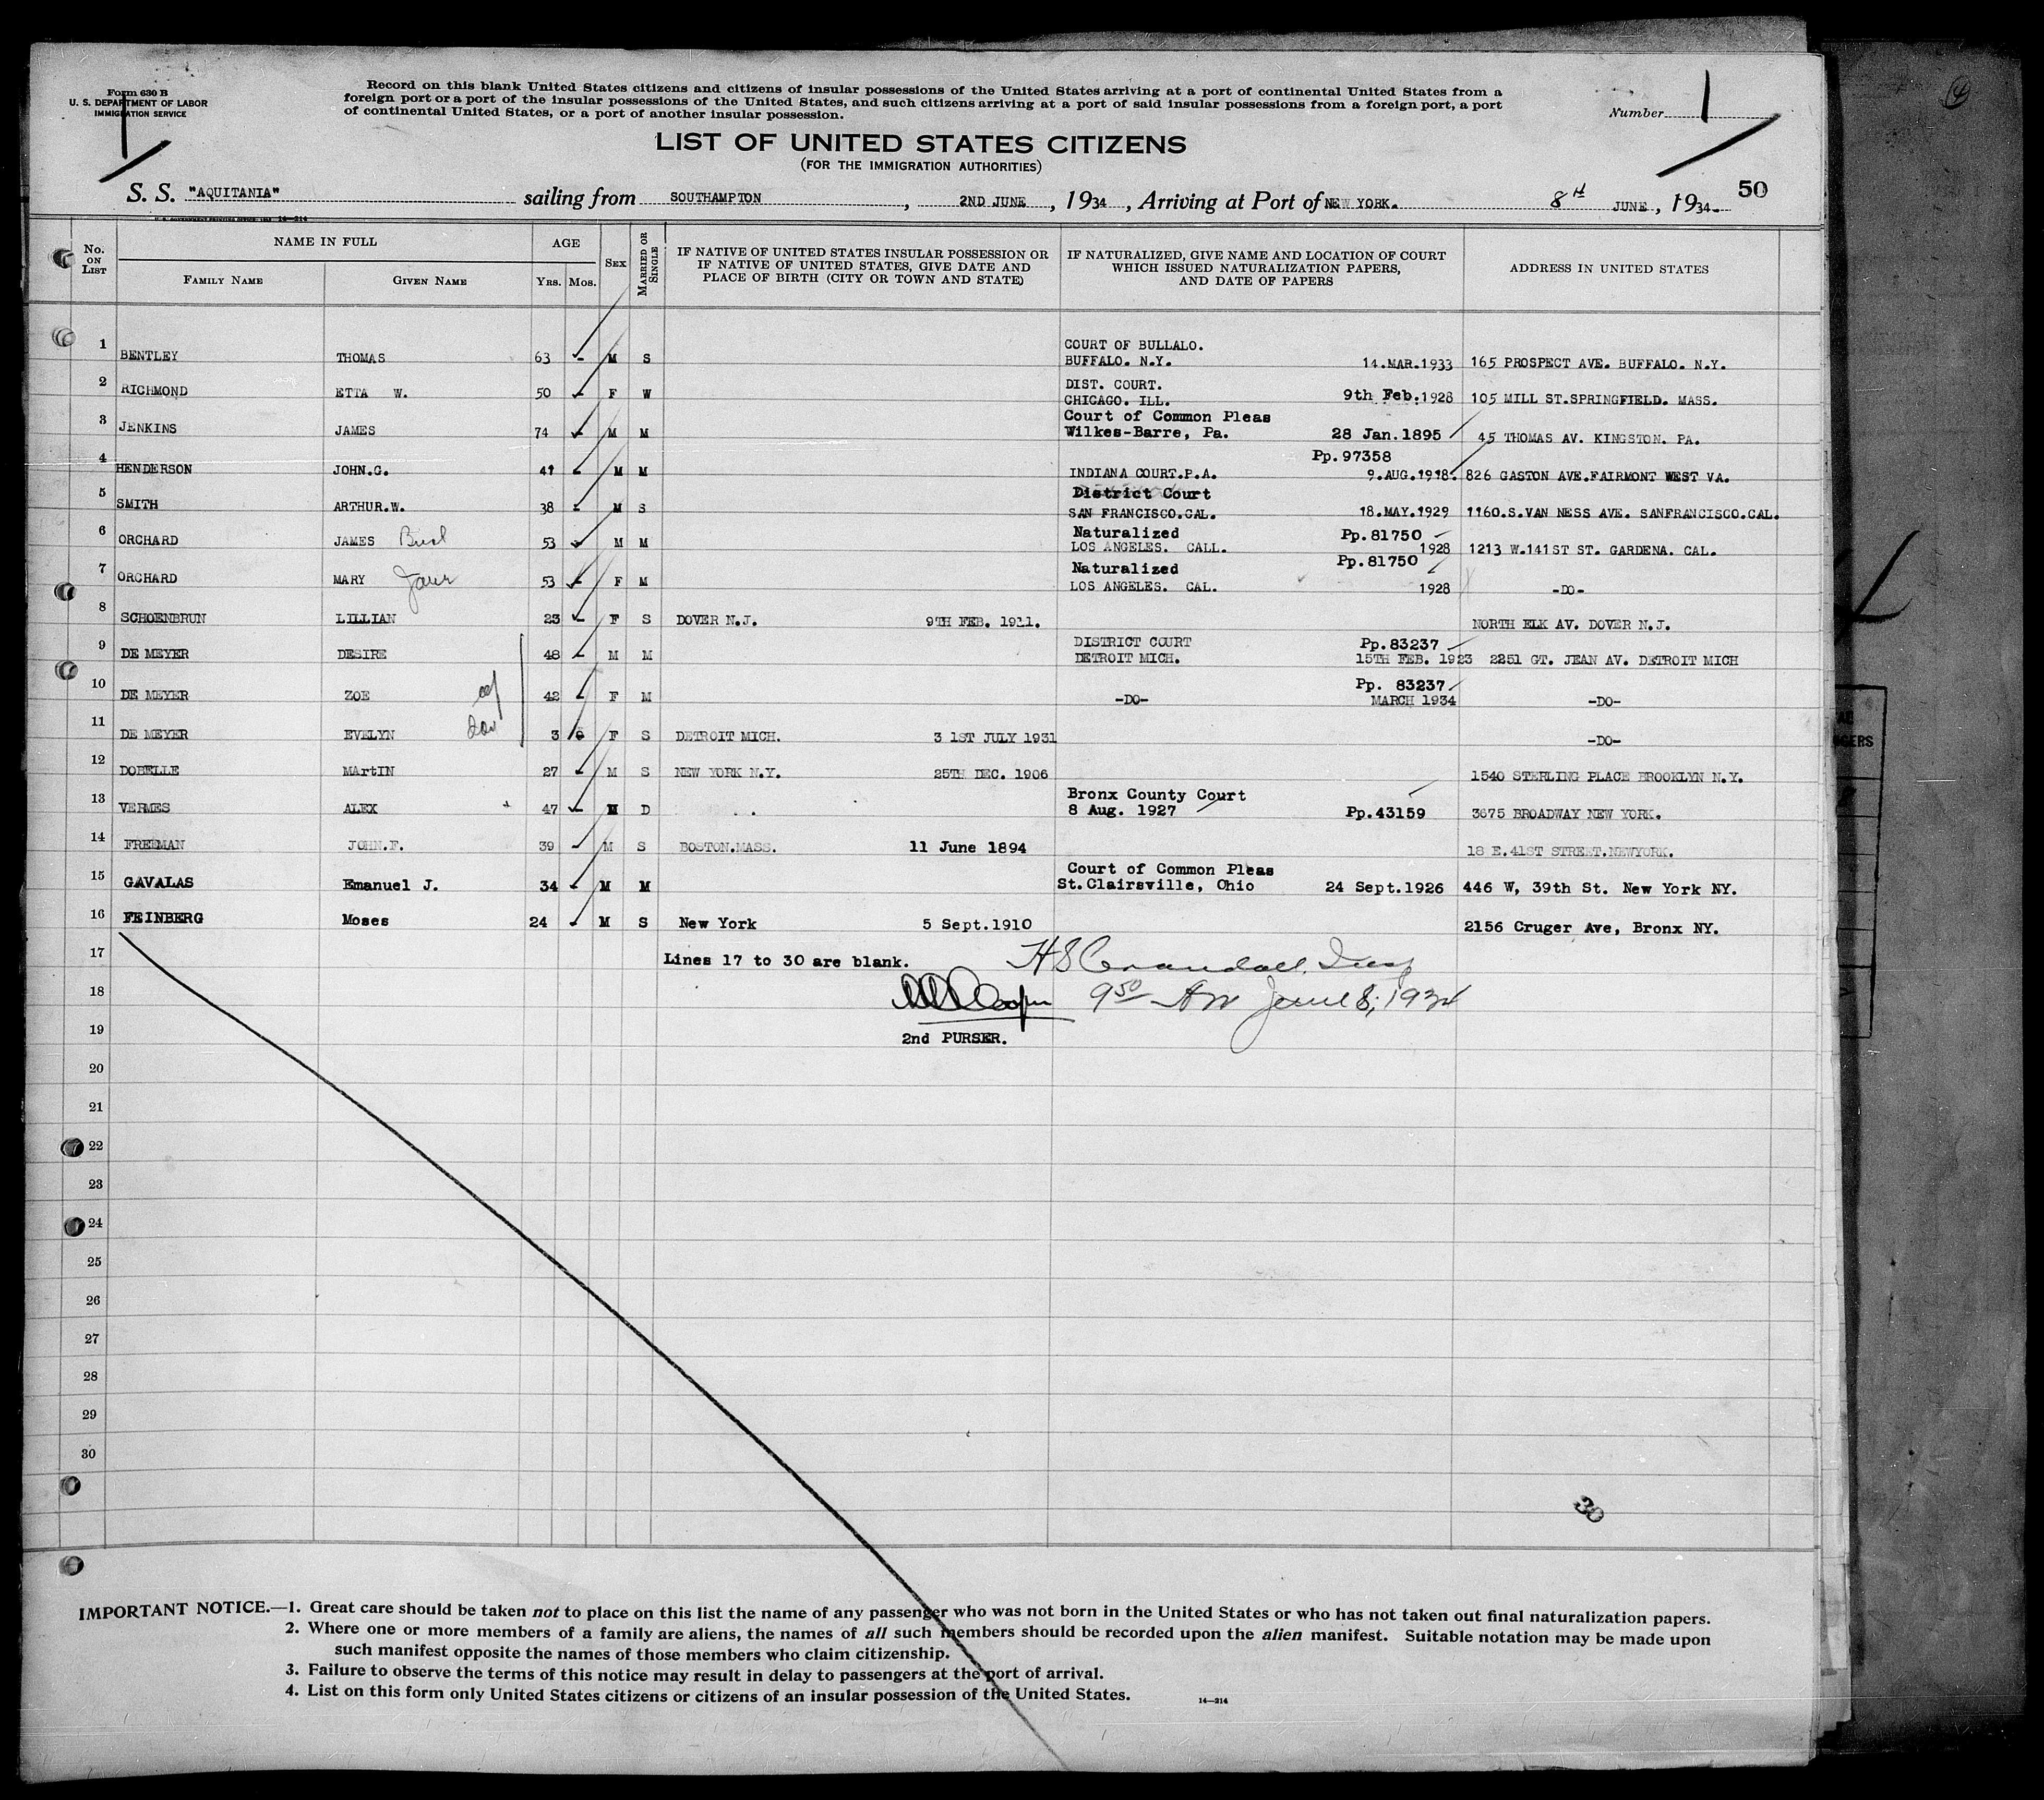 Form 630 B
U. S. DEPARTMENT OF LABOR
IMMIGRATION SERVICE
Record on this blank United States citizens and citizens of insular possessions of the United States arriving at a port of continental United States from a
foreign port or a port of the insular possessions of the United States, and such citizens arriving at a port of said insular possessions from a foreign port, a port
of continental United States, or a port of another insular possession.
Number 1
LIST OF UNITED STATES CITIZENS
(FOR THE IMMIGRATION AUTHORITIES)
S. S. "AQUITANIA" sailing from SOUTHAMPTON, 2ND JUNE, 1934, Arriving at Port of NEW YORK. 8th JUNE, 1934. 50
No. ON LIST NAME IN FULL AGE SEX MARRIED OR SINGLE IF NATIVE OF UNITED STATES INSULAR POSSESSION OR IF NATIVE OF UNITED STATES, GIVE DATE AND PLACE OF BIRTH (CITY OR TOWN AND STATE) IF NATURALIZED, GIVE NAME AND LOCATION OF COURT WHICH ISSUED NATURALIZATION PAPERS, AND DATE OF PAPERS ADDRESS IN UNITED STATES
FAMILY NAME GIVEN NAME YRS. MOS.
COURT OF BULLALO.
1 BENTLEY THOMAS 63 - M S BUFFALO. N.Y. 14.MAR.1933 165 PROSPECT AVE. BUFFALO. N.Y.
DIST. COURT.
2 RICHMOND ETTA W. 50 - F W CHICAGO. ILL. 9th Feb.1928 105 MILL ST.SPRINGFIELD. MASS.
Court of Common Pleas
3 JENKINS JAMES 74 - M M Wilkes-Barre, Pa. 28 Jan.1895 45 THOMAS AV. KINGSTON. PA.
Pp.97358
4 HENDERSON JOHN.G. 41 - M M INDIANA COURT.P.A. 9.AUG.1918. 826 GASTON AVE.FAIRMONT WEST VA.
District Court
5 SMITH ARTHUR.W. 38 - M S SAN FRANCISCO.CAL. 18.MAY.1929 1160.S.VAN NESS AVE. SANFRANCISCO.CAL.
Naturalized Pp.81750
6 ORCHARD JAMES 53 - M M LOS ANGELES. CALL. 1928 1213 W.141ST ST. GARDENA. CAL.
Naturalized Pp.81750
7 ORCHARD MARY 53 - F M LOS ANGELES. CAL. 1928 -DO-
8 SCHOENBRUN LILLIAN 23 - F S DOVER N.J. 9TH FEB. 1911. NORTH ELK AV. DOVER N.J.
DISTRICT COURT Pp.83237
9 DE MEYER DESIRE 48 - M M DETROIT MICH. 15TH FEB. 1923 2251 GT. JEAN AV. DETROIT MICH
Pp. 83237
10 DE MEYER ZOE 42 - F M -DO- MARCH 1934 -DO-
11 DE MEYER EVELYN 3 F S DETROIT MICH. 3 1ST JULY 1931 -DO-
12 DOBELLE MArtIN 27 - M S NEW YORK N.Y. 25TH DEC. 1906 1540 STERLING PLACE BROOKLYN N.Y.
Bronx County Court
13 VERMES ALEX 47 - M D 8 Aug. 1927 Pp.43159 3675 BROADWAY NEW YORK.
14 FREEMAN JOHN.F. 39 - M S BOSTON.MASS. 11 June 1894 18 E.41ST STREET.NEWYORK.
Court of Common Pleas
15 GAVALAS Emanuel J. 34 - M M St.Clairsville, Ohio 24 Sept.1926 446 W, 39th St. New York NY.
16 FEINBERG Moses 24 - M S New York 5 Sept.1910 2156 Cruger Ave, Bronx NY.
17 Lines 17 to 30 are blank. H S Crandall, Insp
18 Cooper 9 50 AM June 8, 1934
19 2nd PURSER.
20
21
22
23
24
25
26
27
28
29
30
30
IMPORTANT NOTICE.—1. Great care should be taken not to place on this list the name of any passenger who was not born in the United States or who has not taken out final naturalization papers.
2. Where one or more members of a family are aliens, the names of all such members should be recorded upon the alien manifest. Suitable notation may be made upon
such manifest opposite the names of those members who claim citizenship.
3. Failure to observe the terms of this notice may result in delay to passengers at the port of arrival.
4. List on this form only United States citizens or citizens of an insular possession of the United States.
14—214